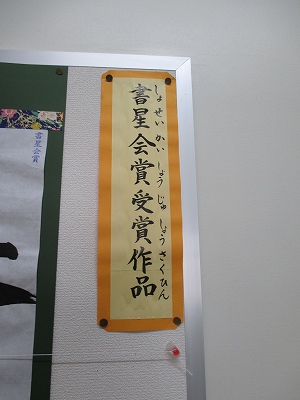 書星会賞
書星会賞受賞作品
しょせいかいしょうじゅしょうさくひん